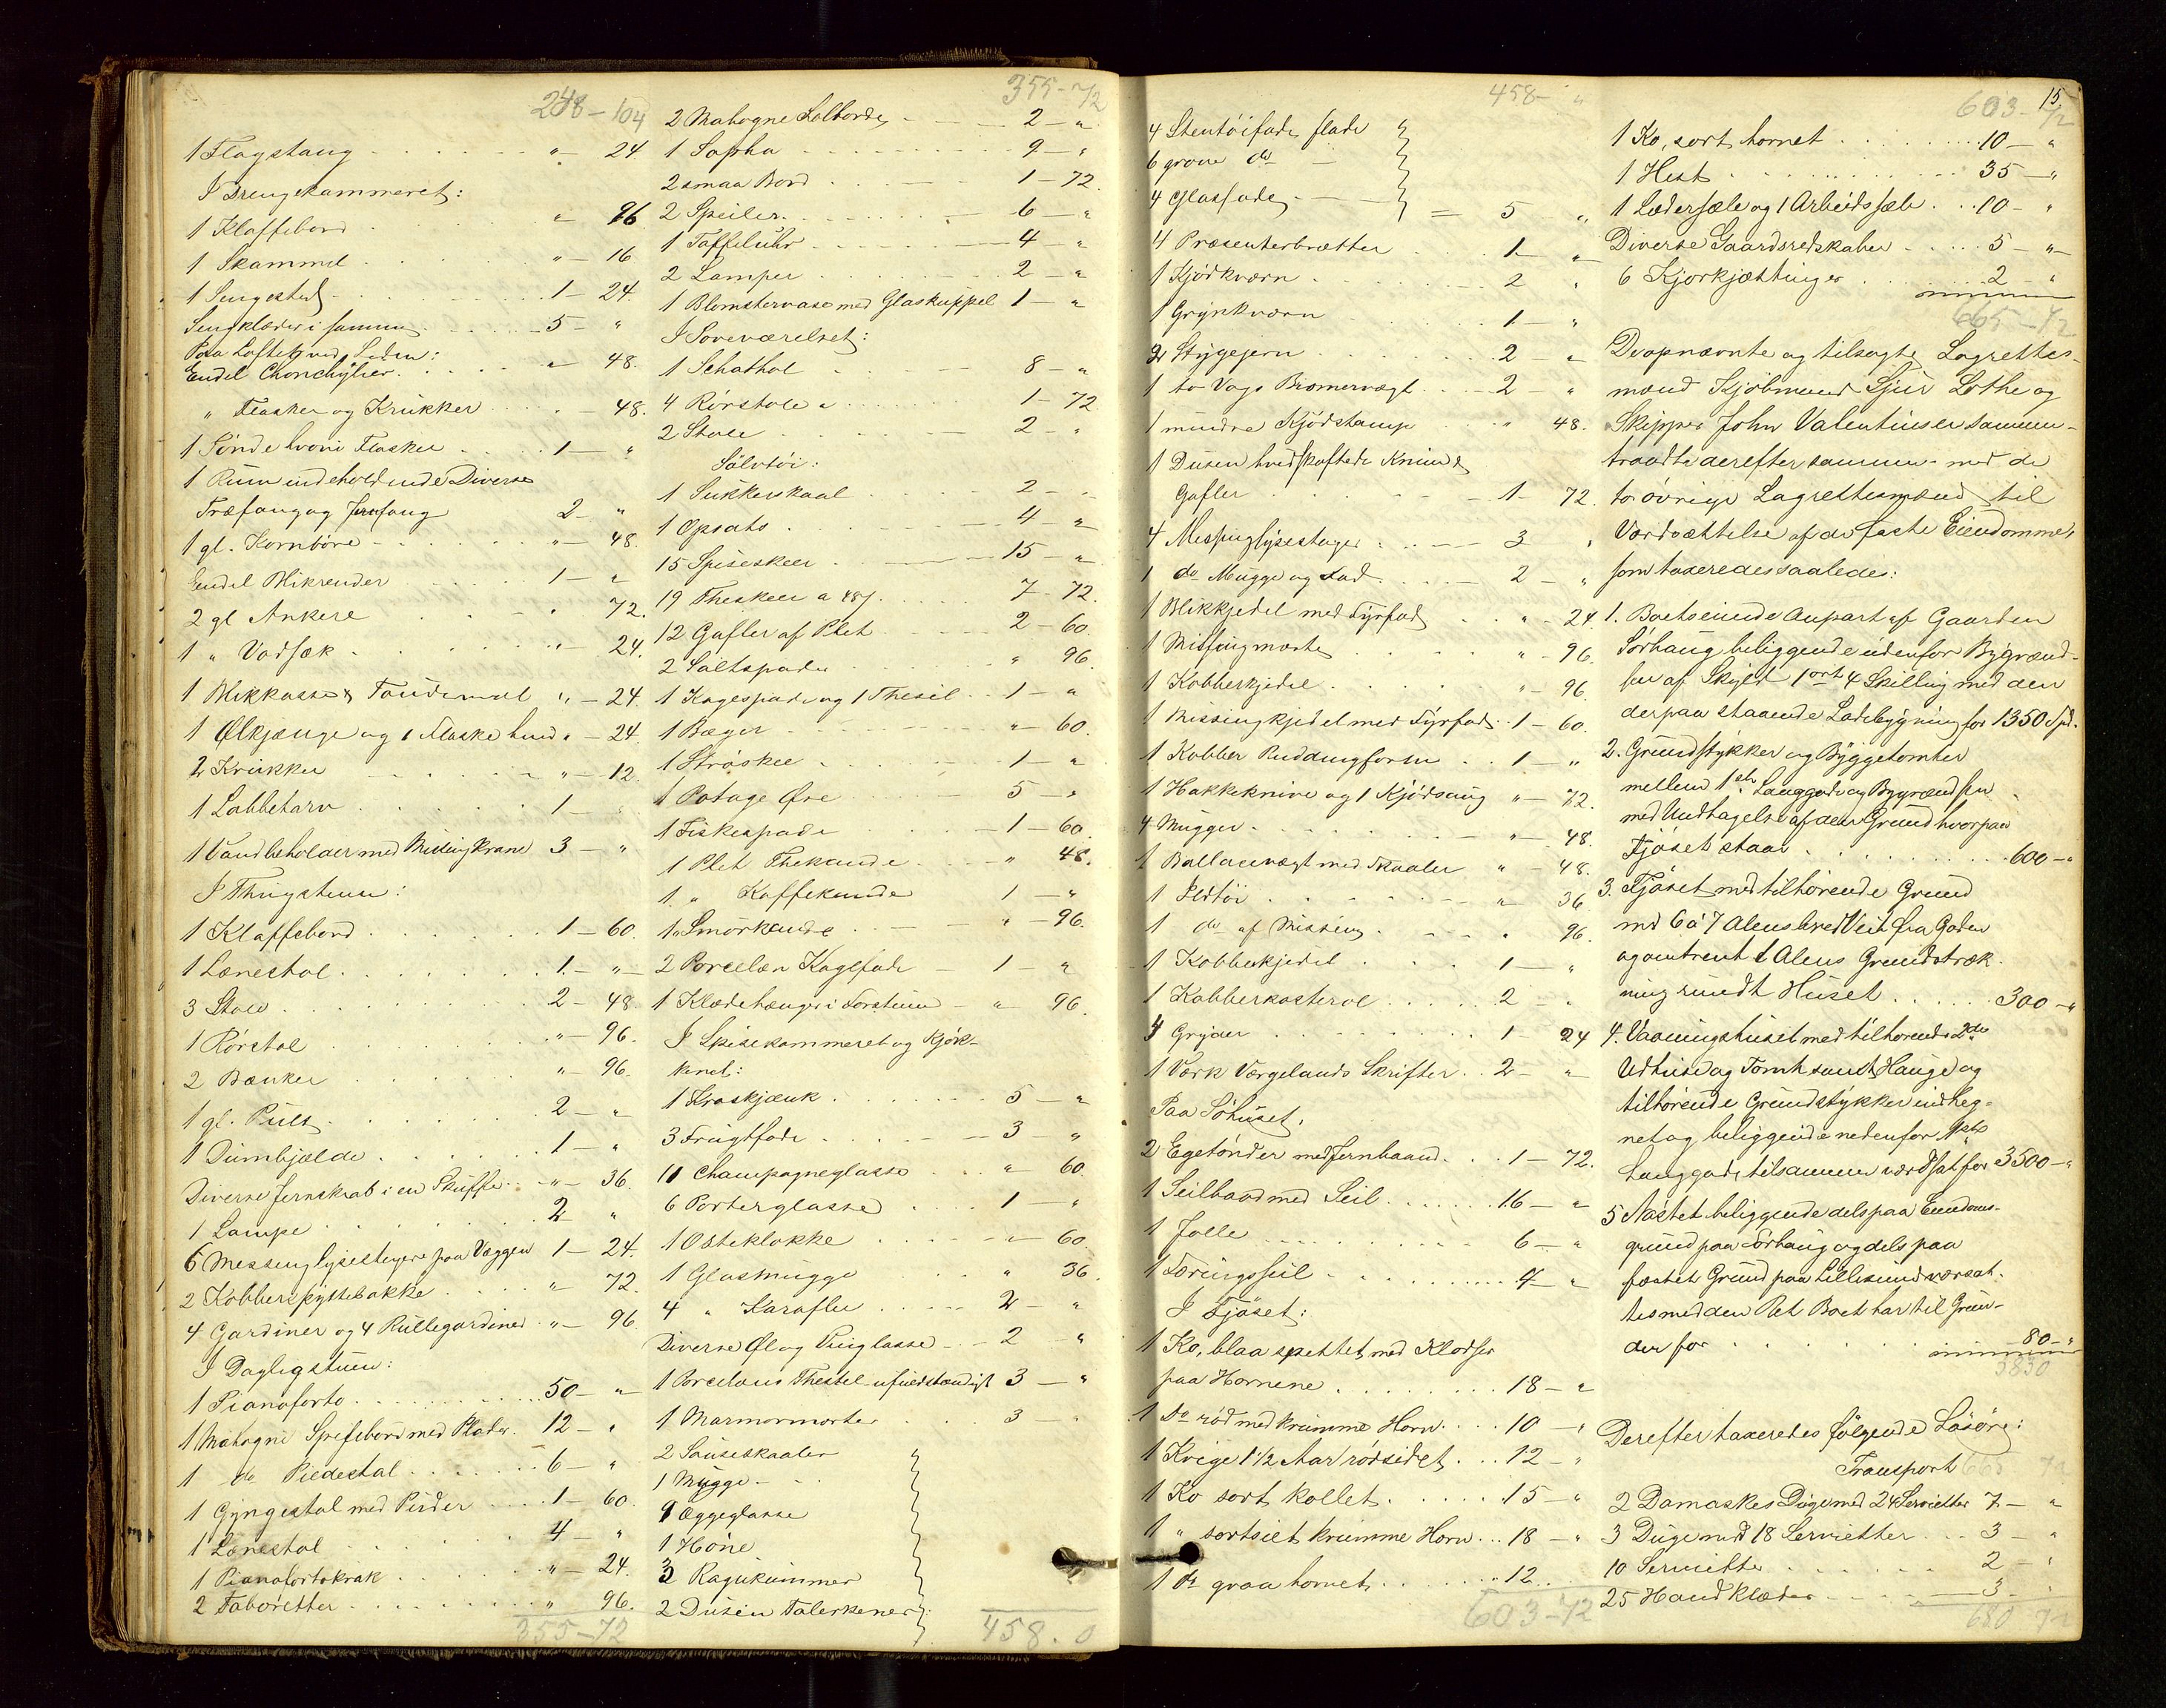 248-104
1 Flagstang " - 24
I Drengekammeret:
1 Klaffebord " - 96
1 Skammel " - 16
1 Sengested 1 - 24
Sengklæder i samme 5 - "
Paa Loftet ved Siden:
Endel Chonchylier " - 48
" Flasker og Krukker " - 48.
1 Tønde hvori Flasker 1 - "
1 Rum indeholdende Diverse
Træfang og Jernfang 2 - "
1 gl. Kornbøre " - 48.
Endel Blikrender 1 - "
2 gl Ankere " 72.
1 " Vadsæk " - 24.
1 Blikkasse & Tøndemaal " - 24.
1 Ølkjænge og 1 Flaskehund " - 24.
2 Krukker " - 12.
1 Labbetarv 1 -
1 Vandbeholder med Missingkrane 3 - "
I Thingstuen:
1 Klaffebord 1 - 60.
1 Lænestol 1 - " -
3 Stole 2 - 48.
1 Rørstol " - 96.
2 Bænker " - 96.
1 gl. Pult 2 - "
1 Dumbjælde 1 - "
Diverse Jernskrab i en Skuffe " - 36.
1 Lampe 2 "
6 Messinglysestager paa Væggen 1 - 24.
2 Kobberspyttebakke " - 72.
4 Gardiner og 4 Rullegardiner " - 96.
I Dagligstuen:
1 Pianoforto 50 - "
1 Mahogni Spisebord med Plader 12 - "
1 do Piedestal 6 - "
1 Gyngestol med Puder 1 - 60.
1 Lænestol 4 - "
1 Pianofortokrak " - 24.
2 Taboretter " 96.
355-72
355-72
2 Mahogne Lolborde 2 - "
1 Sopha 9 - "
2 smaa Bord 1 - 72.
2 Speiler 6 - "
1 Taffeluhr 4 - "
2 Lamper 2 - "
1 Blomstervase med Glaskuppel 1 - "
I Soveværelset:
1 Schathol 8 - "
4 Rørstole " 1 - 72
2 Stole 2 - "
Sølvtøi:
1 Sukkerskaal 2 - "
1 Opsats 4 - "
15 Spiseskeer 15 - "
19 Theskeer a 48ß 7 - 72.
12 Gafler af Plet 2 - 60.
2 Saltspader " 96.
1 Kagespade og 1 Thesil 1 - "
1 Bæger " - 60.
1 Strøskee 1 - "
1 Potage Øse 5 - "
1 Fiskespade 1 - 60.
1 Plet Thekande " 48.
1 " Kaffekande 1 - "
1 " Smørkande " - 96.
2 Porcelæn Kagefade 1 - "
1 Klædehænger i Forstuen " 96.
I Spisekammeret og Kjøk-
kenet:
1 Kroskjænk 5 - "
3 Frugtfade 3 - "
11 Champagneglasse " 60.
6 Porterglasse 1 - "
1 Osteklokke " 60.
1 Glasmugge " 36.
4 " Karafler 2 - "
Diverse Øl og Vinglasse 2 "
1 Porcelæns Thestel ufuldstændigt 3 - "
1 Marmormorter 3 - "
2 Sauseskaaler
1 Mugge
9 Æggeglasse
1 Høne
3 Ragukummer
2 Dusin Talerkener
458. 0
458 - "
4 Stentøifade flade
6 grove do
4 Glasfade = 5 "
4 Præsenterbrætter 1 - "
1 Kjødkværn 2 "
1 Grynkværn 1 - "
2 Strygejern 2 - "
1 to Vogs Bismervægt 2 - "
1 mindre Kjødstamp " 48.
1 Dusin hvidskaftede Knive &
Gafler 1 - 72.
4 Messinglysestager 3 "
1 do Mugge og Fad 2 - "
1 Blikkjedel med Fyrfad " - 24.
1 Missingmorter " - 96.
1 Kobberkjedel " - 96
1 Missingkjedel med Fyrfad 1 - 60.
1 Kobber Puddingform 1 - "
1 Hakkekniv og 1 Kjødsaug " - 72.
4 Mugger " - 48.
1 Ballancevægt med Skaaler " - 48.
1 Ildtöi " 36
1 do af Missing " 96.
1 Kobberkjedel 1 - "
1 Kobberkasterol 2 - "
4 Gryder 1 - 24
1 Værk Værgelands Skrifter 2 - "
Paa Söhuset.
2 Egetønder med Jernbaand 1 - 72.
1 Seilbaad med Seil 16 - "
1 Jolle 6 - "
1 Færingsseil 4 - "
I Fjöset:
1 Ko, blaaspettet med Klodser
paa Hornene 18 - "
1 Do rød med krumme Horn 10 - "
1 Kvige 1 1/2 Aar rødsidet 12 - "
1 Ko sort kollet 15 - "
1 " sortsiet krumme Horn 18 - "
1 do graa hornet 12
603-72
15
603-72
1 Ko, sort hornet 10 - "
1 Hest 35 - "
1 Lædersæle og 1 Arbeidssæle 10 - "
Diverse Gaardsredskaber 5 - "
6 Kjørkjættinger 2 - "
665-72
De opnævnte og tilsagte Lagrettes-
mænd Kjøbmænd Sjur Lothe og
Skipper John Valentinsen sammen-
traadte derefter sammen med de
to øvrige Lagrettesmænd til
Værdsættelse af de faste Eiendomme,
som taxeredes saaledes:
1. Boets eiende Anpart af Gaarden
Sørhaug beliggende udenfor Bygrænd-
sen af Skyld 1 ort 4 Skilling med den
derpaa staaende Ladebygning for 1350 Spd.
2. Grundstykker og Byggetomter
mellem 1ste Langgade og Bygrændsen
med Undtagelse af den Grund hvorpaa
Fjöset staar 600 - "
3. Fjöset med tilhørende Grund
med 6 à 7 Alens bred Vei fra Gaden
og omtrent 1 Alens Grundstræk-
ning rundt Huset 300 - "
4. Vaaningshuset med tilhørende 2de
Udhuse og Tomt samt Hauge og
tilhørende Grundstykker indheg-
net og beliggende nedenfor 1ste
Langgade tilsammen værdsat for 3500 - "
5 Nøstet beliggende dels paa Eiendoms-
grund paa Sørhaug og dels paa
fæstet Grund paa Lillesund værdsat-
tes med den Ret Boet har til Grun-
den for 80 - "
5830
Derefter taxeredes følgende Løsøre:
Transport 665 72
2 Damaskes Duge med 24 Servietter 7 - "
3 Duge med 18 Servietter 3 - "
10 Servietter 2 - "
25 Haandklæder 3 - "
680 72